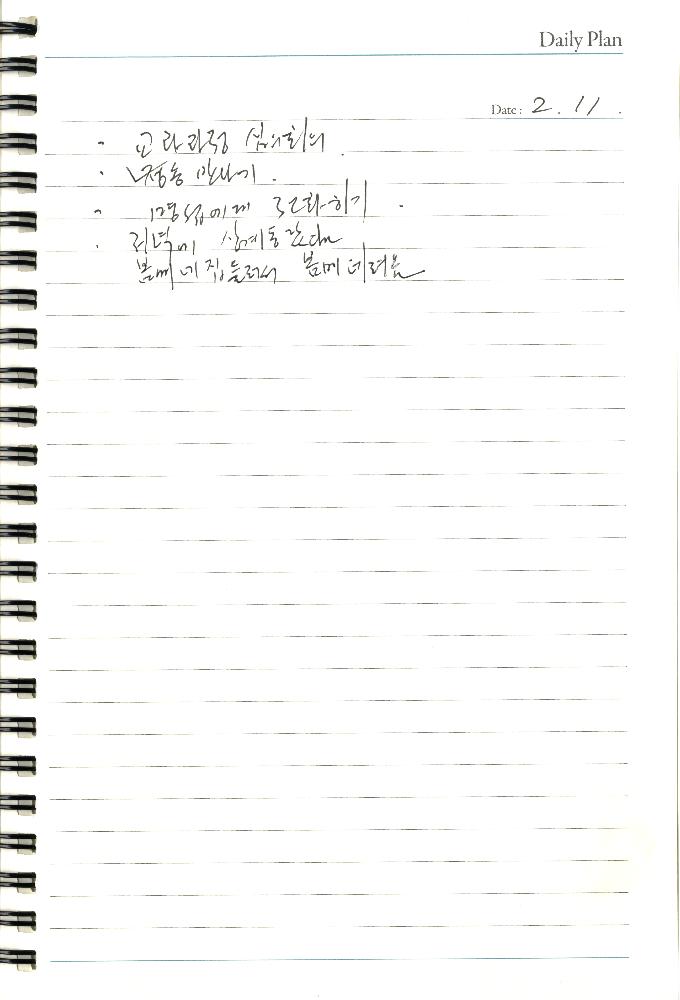 Daily Plan
Date : 2 . 11 .
· 교과과정 심의회의 .
· 만나기 .
· 에게 전화하기 .
· 저녁에 상계동 갔다
봄메네 집 들러서 봄메 데려옴